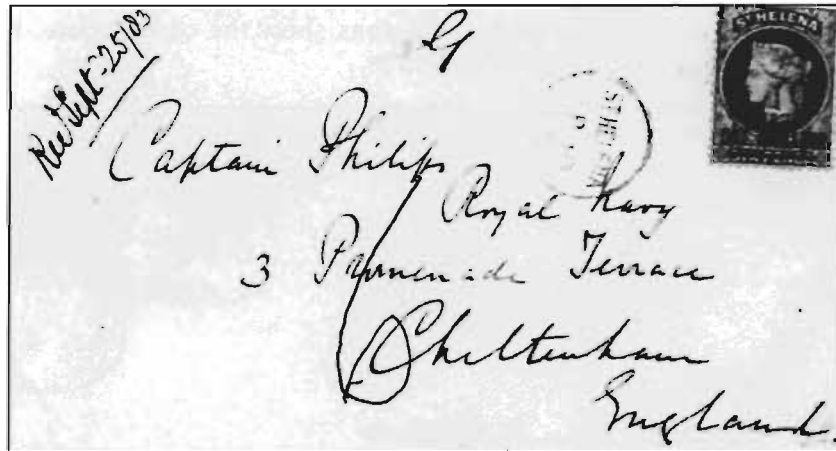 show the
Rec'd Sept. 25/83
ST HELENA
ST HELENA
Captain Philips
Royal Navy
3 Promenade Terrace
Cheltenham
England.